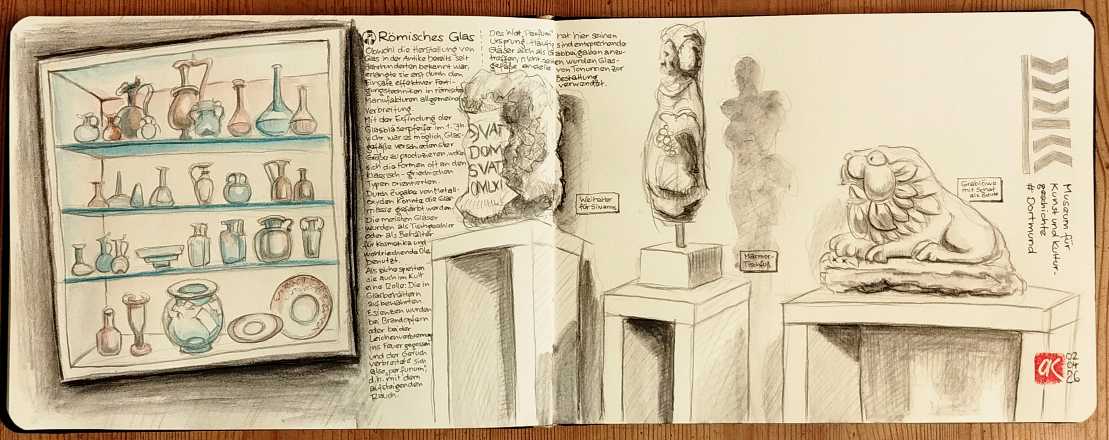 Römisches Glas
Obwohl die Herstellung von
Glas in der Antike bereits seit
Jahrhunderten bekannt war,
erlangte sie erst durch den
Einsatz effektiver Ferti-
gungstechniken in römischen
Manufakturen allgemeine
Verbreitung.
Mit der Erfindung der
Glasbläserpfeife im 1. Jh.
v. Chr. war es möglich, Glas-
gefäße verschiedenster
Größe zu produzieren, wobei
sich die Formen oft an den
klassisch-griechischen
Typen orientierten.
Durch Zugabe von Metall-
oxiden konnte die Glas-
masse gefärbt werden.
Die meisten Gläser
wurden als Tischgeschirr
oder als Behälter
für Kosmetika und
wohlriechende Öle
benutzt.
Als solche spielten
sie auch im Kult
eine Rolle: Die in
Glasbehältern
aufbewahrten
Essenzen wurden
bei Brandopfern
oder bei der
Leichenverbrennung
ins Feuer gegossen
und der Geruch
verbreitete sich
also "per fumum",
d.h. mit dem
aufsteigenden
Rauch.
Das Wort "Parfüm" hat hier seinen
Ursprung. Häufig sind entsprechende
Gläser auch als Grabbeigaben anzu-
treffen, nicht selten wurden Glas-
gefäße anstelle von Tonurnen zur
Bestattung
verwendet.
SVAT
DOM
SVAT
OMLXI
Weihalter
für Silvanus
Marmor-
Tischfuß
Grablöwe
mit Schaf
als Beute
Museum für
Kunst und Kultur-
geschichte
# Dortmund
02
04
26